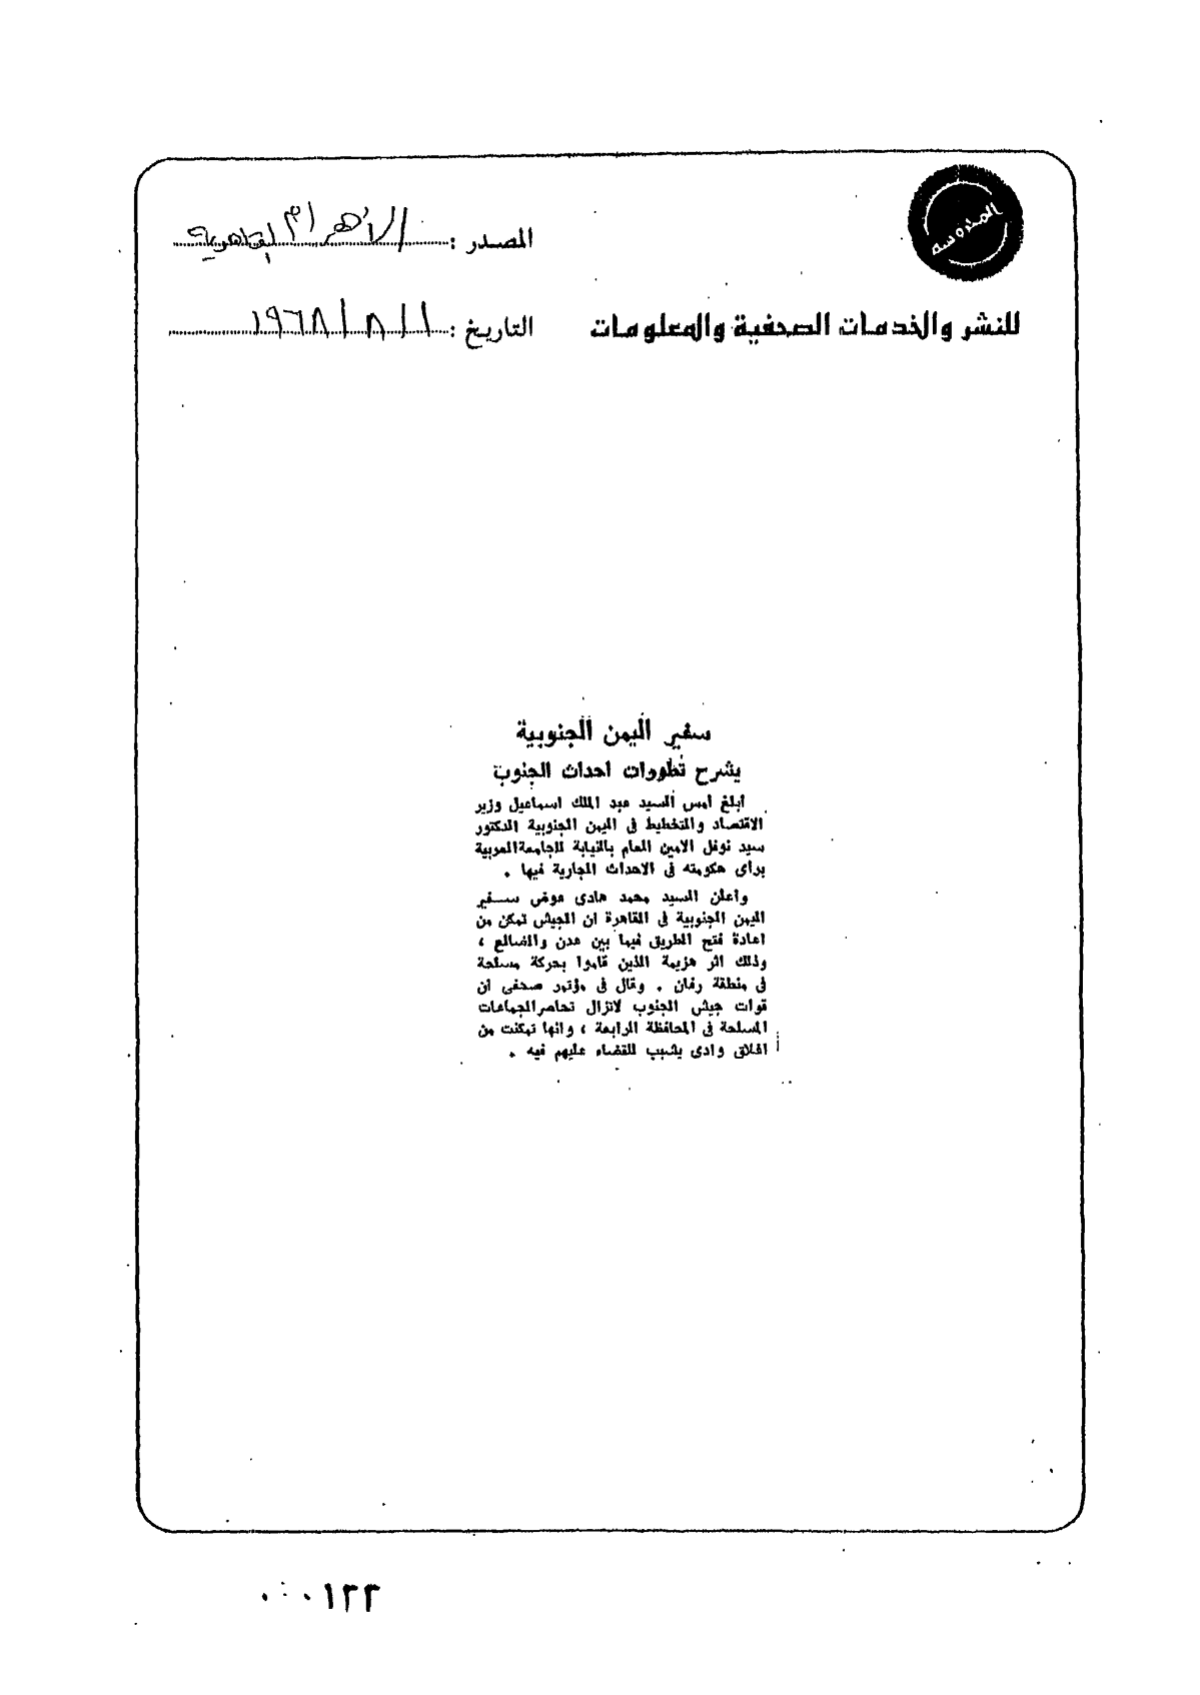 المصدر : الأهرام القاهرية
للنشر والخدمات الصحفية والمعلومات
التاريخ : ١ / ٨ / ١٩٦٨
سفير اليمن الجنوبية
يشرح تطورات احداث الجنوب
ابلغ امس السيد عبد الملك اسماعيل وزير
الاقتصاد والتخطيط فى اليمن الجنوبية الدكتور
سيد نوفل الامين العام بالنيابة للجامعة العربية
براى حكومته فى الاحداث الجارية فيها .
واعلن السيد محمد هادى عوض سفير
اليمن الجنوبية فى القاهرة ان الجيش تمكن من
اعادة فتح الطريق فيما بين عدن والضالع ،
وذلك اثر هزيمة الذين قاموا بحركة مسلحة
فى منطقة ردفان . وقال فى مؤتمر صحفى ان
قوات جيش الجنوب لاتزال تحاصر الجماعات
المسلحة فى المحافظة الرابعة ، وانها تمكنت من
اغلاق وادى يشبب للقضاء عليهم فيه .